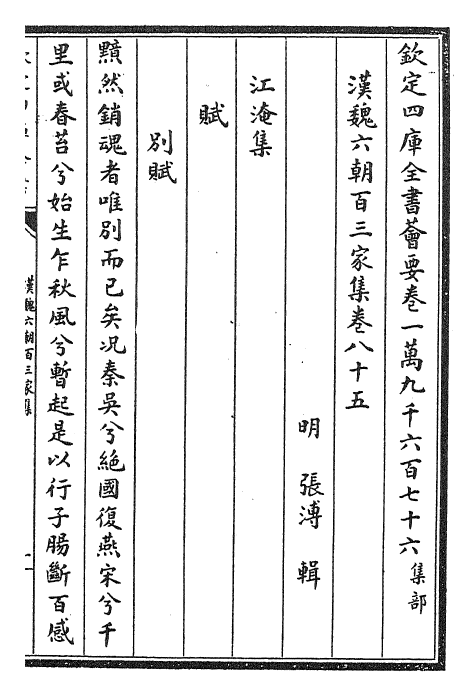 欽定四庫全書薈要卷一萬九千六百七十六 集部
漢魏六朝百三家集卷八十五
明 張溥 輯
江淹集
賦
別賦
黯然銷魂者唯別而已矣况秦吳兮絶國復燕宋兮千
里或春苔兮始生乍秋風兮暫起是以行子腸斷百感
漢魏六朝百三家集